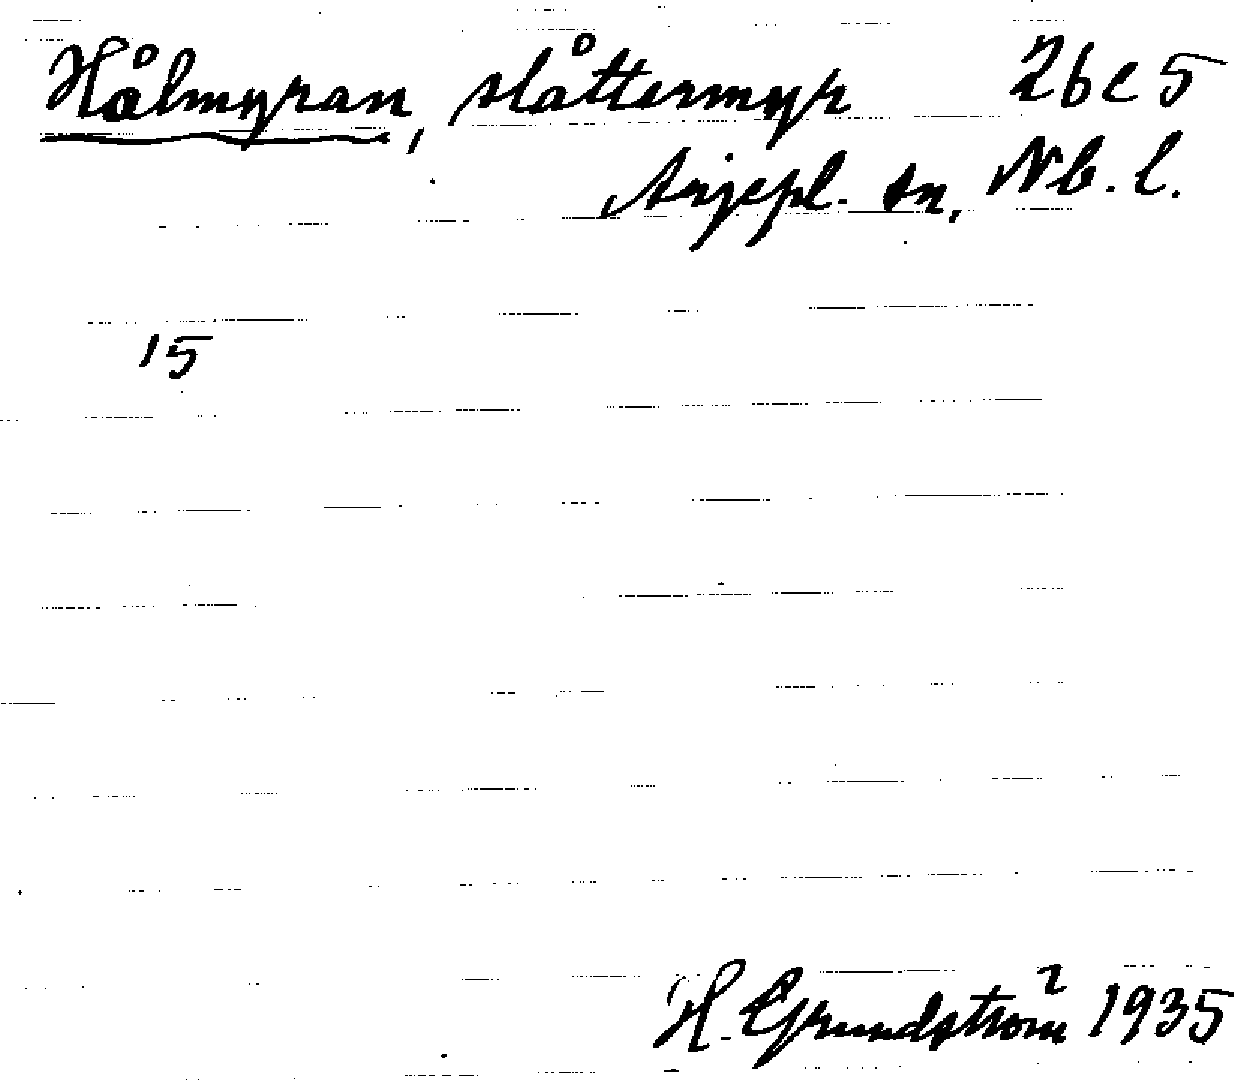 Hålmyran, slåttermyr 26 e 5
Arjepl. sn, Nb. l.
15
H. Grundström 1935